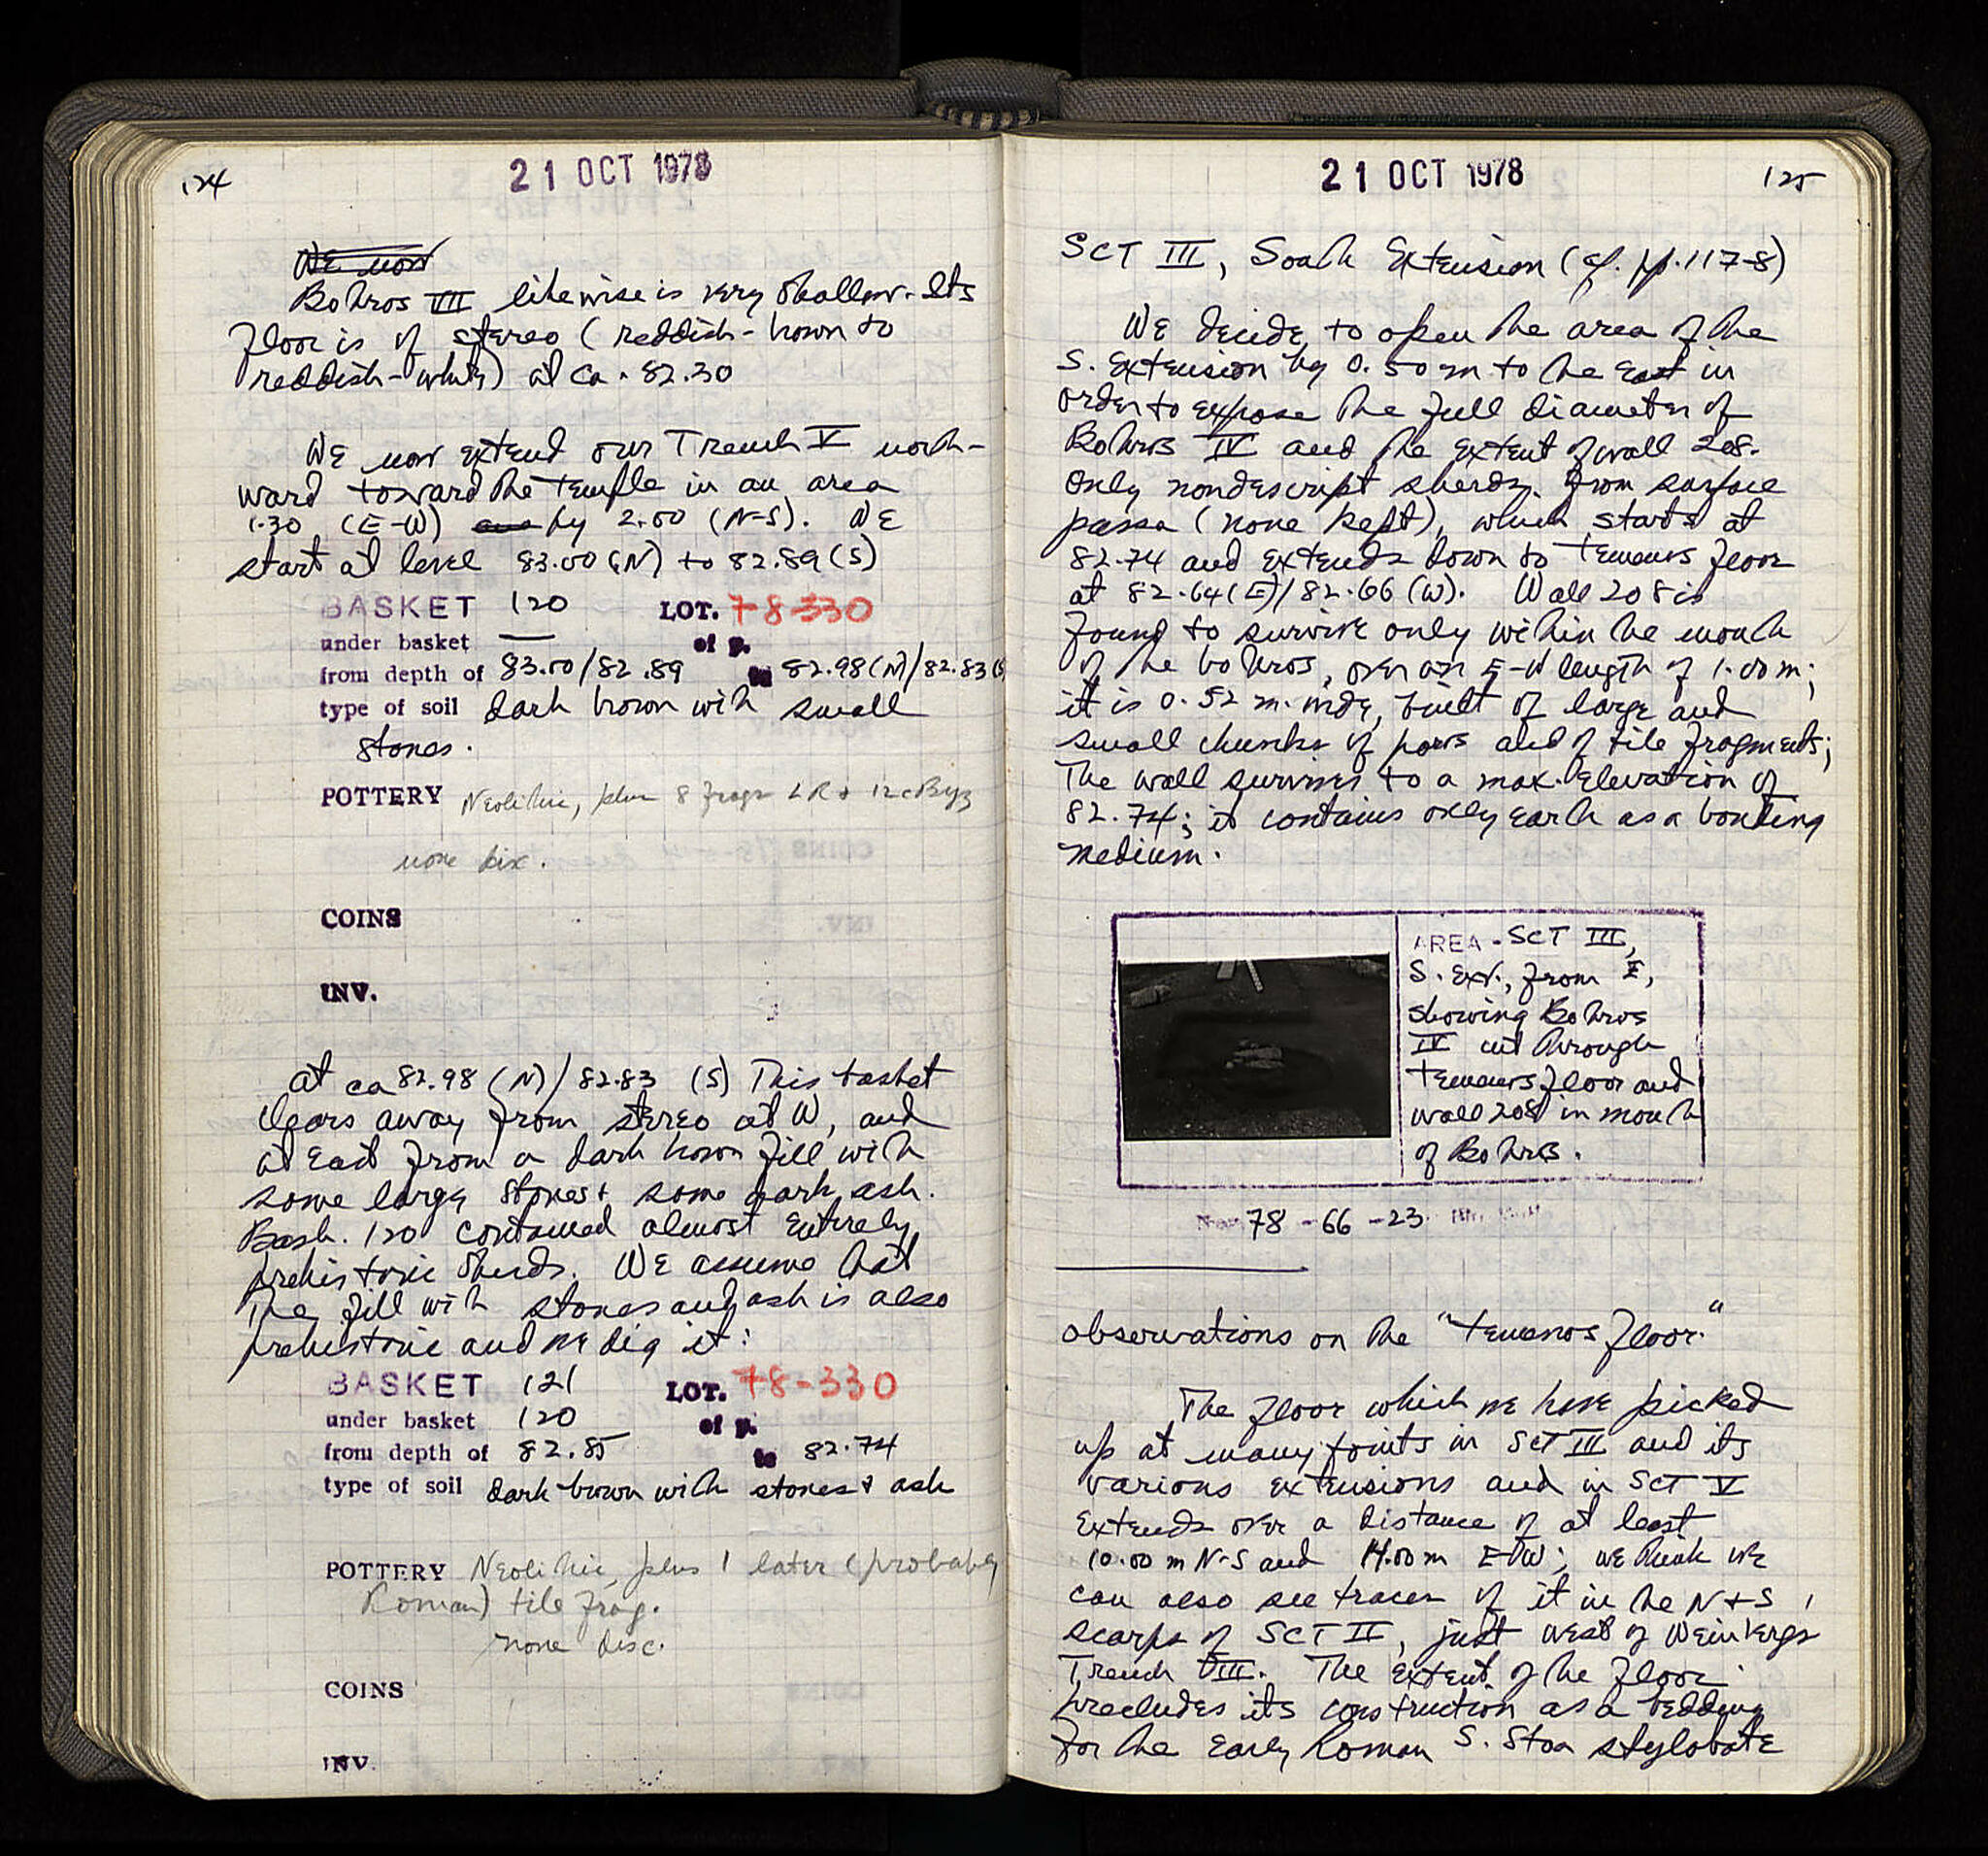 124
21 OCT 1978
We now
Bothros VII likewise is very shallow. Its
floor is of stereo (reddish-brown to
reddish-white) at ca. 82.30
We now extend our Trench V north-
ward toward the temple in an area
1.30 (E-W) by 2.00 (N-S). We
start at level 83.00 (N) to 82.89 (S)
BASKET 120 LOT. 78-330
under basket — of p.
from depth of 83.00/82.89 to 82.98(N)/82.83(S)
type of soil dark brown with small
stones.
POTTERY Neolithic, plus 8 frags LR + 12c Byz
none disc.
COINS
INV.
at ca 82.98 (N)/82.83 (S) This basket
clears away from stereo at W, and
at east from a dark brown fill with
some large stones + some dark ash.
Bask. 120 contained almost entirely
prehistoric sherds. We assume that
the fill with stones and ash is also
prehistoric and we dig it:
BASKET 121 LOT. 78-330
under basket 120 of p.
from depth of 82.85 to 82.74
type of soil dark brown with stones + ash
POTTERY Neolithic, plus 1 later (probably
Roman) tile frag.
none disc.
COINS
INV.
21 OCT 1978
125
SCT III, South Extension (cf. pp. 117-8)
We decide to open the area of the
S. Extension by 0.50 m to the east in
order to expose the full diameter of
Bothros IV and the extent of wall 208.
Only nondescript sherds from surface
passa (none kept), which starts at
82.74 and extends down to temenos floor
at 82.64(E)/82.66 (W). Wall 208 is
found to survive only within the mouth
of the bothros, over an E-W length of 1.00 m;
it is 0.52 m. wide, built of large and
small chunks of poros and of tile fragments;
The wall survives to a max. elevation of
82.74; it contains only earth as a bonding
medium.
AREA - SCT III,
S. Ext., from E,
showing Bothros
IV cut through
temenos floor and
wall 208 in mouth
of Bothros.
78-66-23
observations on the "temenos floor."
The floor which we have picked
up at many points in SCT III and its
various extensions and in SCT V
extends over a distance of at least
10.00 m N-S and 14.00 m E-W; we think we
can also see traces of it in the N + S
scarps of SCT II, just west of Weinbergs
Trench VIII. The extent of the floor
precludes its construction as a bedding
for the Early Roman S. Stoa stylobate